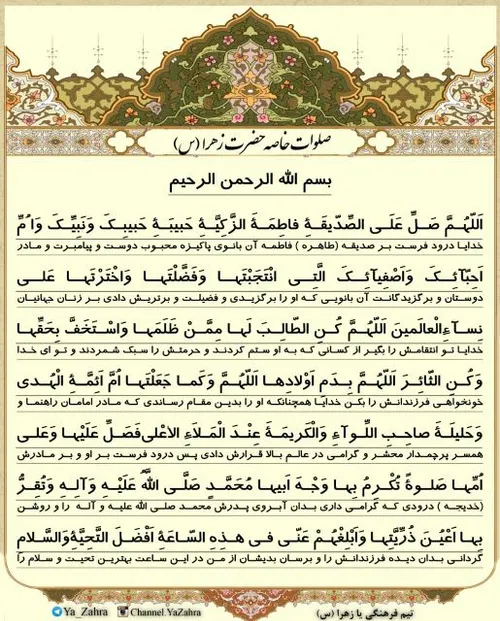 صلوات خاصه حضرت زهرا (س)
بسم الله الرحمن الرحیم
اَللّهُمَّ صَلِّ عَلَی الصِّدّیقَةِ فاطِمَةَ الزَّکِیَّةِ حَبیبَةِ حَبیبِکَ وَنَبِیِّکَ وَاُمِّ
خدایا درود فرست بر صدیقه (طاهره) فاطمه آن بانوی پاکیزه محبوب دوست و پیامبرت و مادر
اَحِبّآئِکَ وَاَصْفِیآئِکَ الَّتِی انْتَجَبْتَها وَفَضَّلْتَها وَاخْتَرْتَها عَلی
دوستان و برگزیدگانت آن بانویی که او را برگزیدی و فضیلت و برتریش دادی بر زنان جهانیان
نِسآءِالْعالَمینَ اَللّهُمَّ کُنِ الطّالِبَ لَها مِمَّنْ ظَلَمَها وَاسْتَخَفَّ بِحَقِّها
خدایا تو انتقامش را بگیر از کسانی که به او ستم کردند و حرمتش را سبک شمردند و تو ای خدا
وَکُنِ الثّائِرَ اَللّهُمَّ بِدَمِ اَوْلادِها اَللّهُمَّ وَکَما جَعَلْتَها اُمَّ اَئِمَّةِ الْهُدی
خونخواهی فرزندانش را بکن خدایا همچنانکه او را بدین مقام رساندی که مادر امامان راهنما و
وَحَلیلَةَ صاحِبِ اللِّوآءِ وَالْکَریمَةَ عِنْدَ الْمَلَاءِ الاْعْلی فَصَلِّ عَلَیْها وَعَلی
همسر پرچمدار محشر و گرامی در عالم بالا قرارش دادی پس درود فرست بر او و بر مادرش
اُمِّها صَلوةً تُکْرِمُ بِها وَجْهَ اَبیها مُحَمَّدٍ صَلَّی اللّهُ عَلَیْهِ وَآلِهِ وَتُقِرُّ
(خدیجه) درودی که گرامی داری بدان آبروی پدرش محمد صلی الله علیه و آله را و روشن
بِها اَعْیُنَ ذُرِّیَّتِها وَاَبْلِغْهُمْ عَنّی فی هذِهِ السّاعَةِ اَفْضَلَ التَّحِیَّةِ وَالسَّلامِ
گردانی بدان دیده فرزندانش را و برسان بدیشان از من در این ساعت بهترین تحیت و سلام را
تیم فرهنگی یا زهرا (س)
Channel.YaZahra
Ya_Zahra